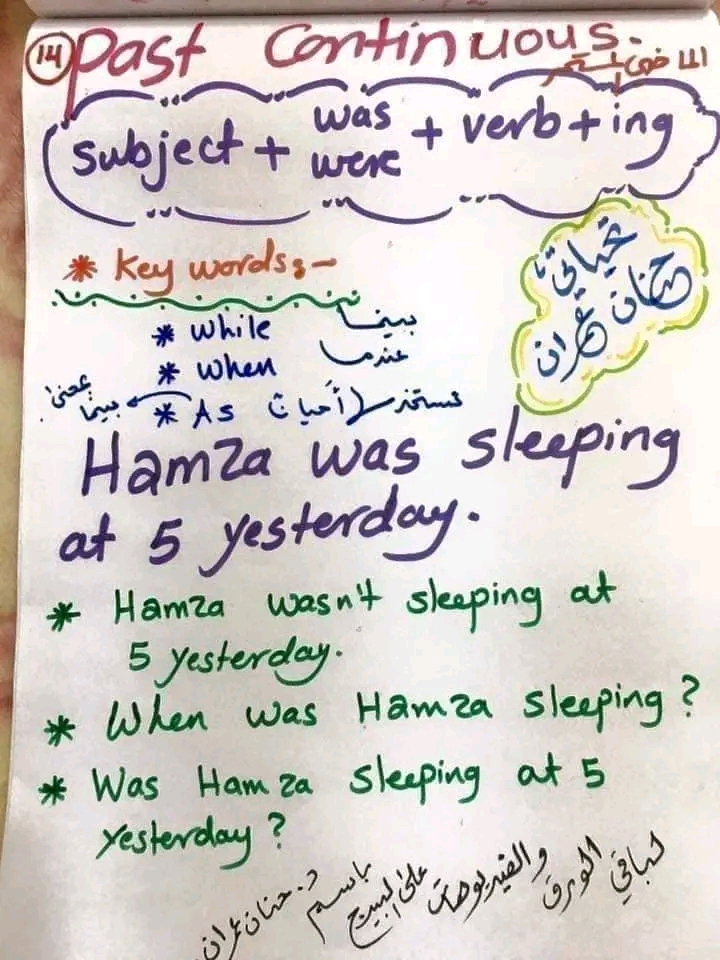 14 Past Continuous.
الماضي المستمر
subject + was were + verb + ing
* Key words:-
تحياتي
حنان عمران
* while بينما
* when عندما
* As تستخدم أحيانا بمعنى بينما
Hamza was sleeping
at 5 yesterday.
* Hamza wasn't sleeping at
5 yesterday.
* When was Hamza sleeping?
* Was Hamza sleeping at 5
yesterday?
لباقي الورق والفيديوهات على البيج باسم د. حنان عمران